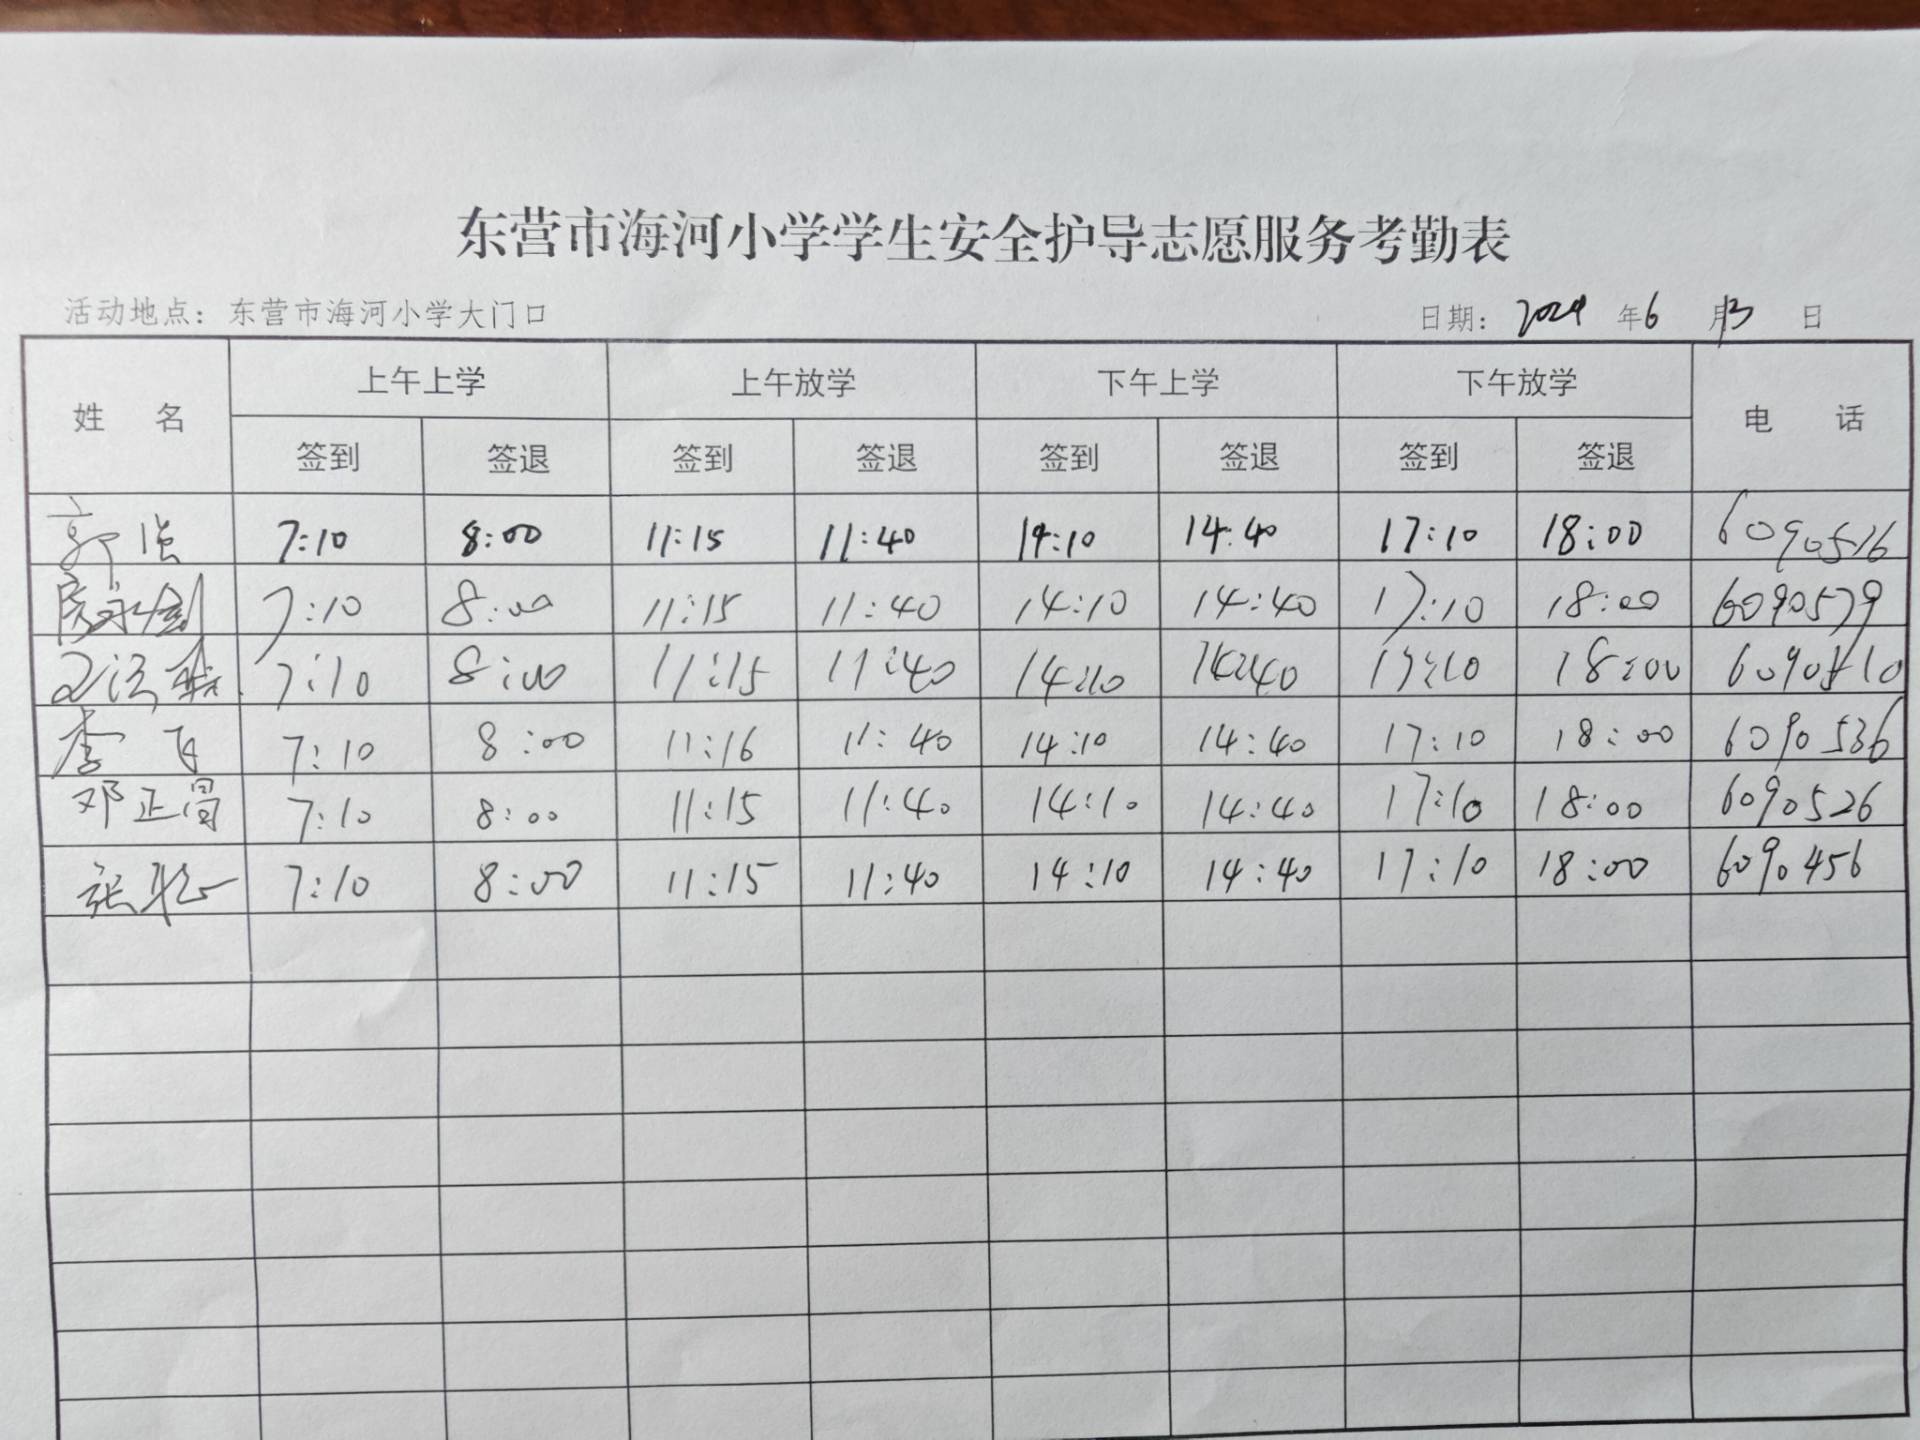 东营市海河小学学生安全护导志愿服务考勤表
活动地点：东营市海河小学大门口 日期：2024 年6 月13 日
姓 名 上午上学 上午放学 下午上学 下午放学 电 话
签到 签退 签到 签退 签到 签退 签到 签退
郭强 7:10 8:00 11:15 11:40 14:10 14:40 17:10 18:00 6090516
7:10 8:00 11:15 11:40 14:10 14:40 17:10 18:00 6090579
7:10 8:00 11:15 11:40 14:10 14:40 17:10 18:00
李飞 7:10 8:00 11:16 11:40 14:10 14:40 17:10 18:00 6090536
邓正昌 7:10 8:00 11:15 11:40 14:10 14:40 17:10 18:00 6090526
张 7:10 8:00 11:15 11:40 14:10 14:40 17:10 18:00 6090456